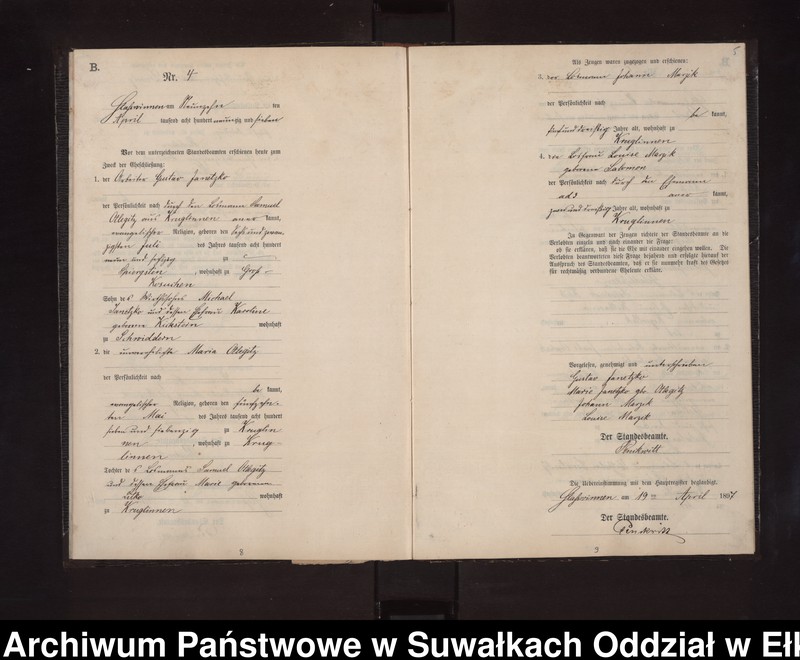 B.
Nr. 4
am Neunzehn ten
April tausend acht hundert neunzig und sieben
Vor dem unterzeichneten Standesbeamten erschienen heute zum
Zweck der Eheschließung:
1. der Arbeiter Gustav Janetzko
der Persönlichkeit nach durch den Losmann Samuel
aus Kruglinnen aner kannt,
evangelischer Religion, geboren den
zigsten Juli des Jahres tausend acht hundert
neun und sechzig zu
, wohnhaft zu Groß
Sohn des Michael
Janetzko und dessen Ehefrau Karoline
geborene wohnhaft
zu Schwiddern
2. die unverehelichte Maria
der Persönlichkeit nach
be kannt,
evangelischer Religion, geboren den fünfzehn
ten Mai des Jahres tausend acht hundert
sieben und siebenzig zu Kruglin
nen , wohnhaft zu Krug
linnen
Tochter des Losmanns Samuel
und dessen Ehefrau Marie geborenen
wohnhaft
zu Kruglinnen
5
Als Zeugen waren zugezogen und erschienen:
3. der Losmann Johann
der Persönlichkeit nach
be kannt,
fünfunddreißig Jahre alt, wohnhaft zu
Kruglinnen
4. die Losfrau Louise
geborene Salomon
der Persönlichkeit nach durch den Ehemann
ad 3 aner kannt,
zweiunddreißig Jahre alt, wohnhaft zu
Kruglinnen
In Gegenwart der Zeugen richtete der Standesbeamte an die
Verlobten einzeln und nach einander die Frage:
ob sie erklären, daß sie die Ehe mit einander eingehen wollen. Die
Verlobten beantworteten diese Frage bejahend und erfolgte hierauf der
Ausspruch des Standesbeamten, daß er sie nunmehr kraft des Gesetzes
für rechtmäßig verbundene Eheleute erkläre.
Vorgelesen, genehmigt und unterschrieben
Gustav Janetzko
Marie Janetzko geb.
Johann
Louise
Der Standesbeamte.
Die Uebereinstimmung mit dem Hauptregister beglaubigt.
am 19 ten April 1897
Der Standesbeamte.
3
Archiwum Państwowe w Suwałkach Oddział w Ełk